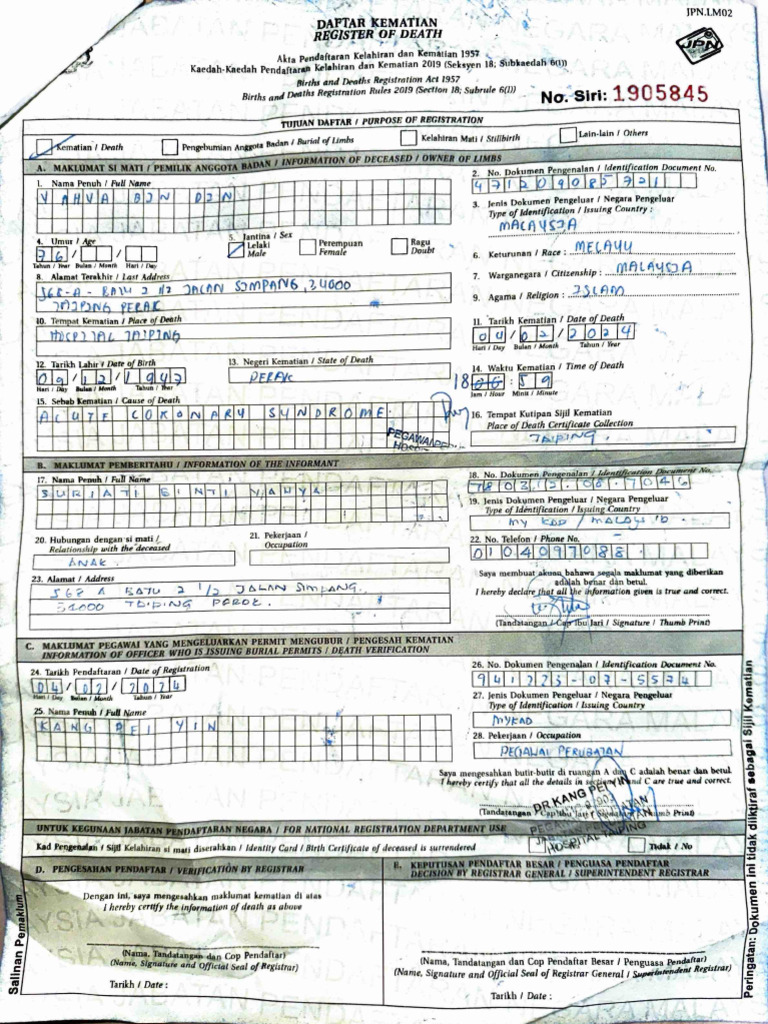 JPN.LM02
DAFTAR KEMATIAN
REGISTER OF DEATH
JPN
Akta Pendaftaran Kelahiran dan Kematian 1957
Kaedah-Kaedah Pendaftaran Kelahiran dan Kematian 2019 (Seksyen 18; Subkaedah 6(1))
Births and Deaths Registration Act 1957
Births and Deaths Registration Rules 2019 (Section 18; Subrule 6(1))
No. Siri: 1905845
TUJUAN DAFTAR / PURPOSE OF REGISTRATION
Kematian / Death
Pengebumian Anggota Badan / Burial of Limbs
Kelahiran Mati / Stillbirth
Lain-lain / Others
A. MAKLUMAT SI MATI / PEMILIK ANGGOTA BADAN / INFORMATION OF DECEASED / OWNER OF LIMBS
1. Nama Penuh / Full Name
YAHYA BIN DIN
2. No. Dokumen Pengenalan / Identification Document No.
471209085721
3. Jenis Dokumen Pengeluar / Negara Pengeluar
Type of Identification / Issuing Country :
MALAYSIA
4. Umur / Age
76 / /
Tahun / Year Bulan / Month Hari / Day
5. Jantina / Sex
Lelaki
Male
Perempuan
Female
Ragu
Doubt
6. Keturunan / Race : MELAYU
7. Warganegara / Citizenship : MALAYSIA
8. Alamat Terakhir / Last Address
568-A- BATU 2 1/2 JALAN SIMPANG, 34000
TAIPING PERAK
9. Agama / Religion : ISLAM
10. Tempat Kematian / Place of Death
HOSPITAL TAIPING
11. Tarikh Kematian / Date of Death
04 / 02 / 2024
Hari / Day Bulan / Month Tahun / Year
12. Tarikh Lahir / Date of Birth
09 / 12 / 1947
Hari / Day Bulan / Month Tahun / Year
13. Negeri Kematian / State of Death
PERAK
14. Waktu Kematian / Time of Death
18 : 59
Jam / Hour Minit / Minute
15. Sebab Kematian / Cause of Death
ACUTE CORONARY SYNDROME
16. Tempat Kutipan Sijil Kematian
Place of Death Certificate Collection
TAIPING
B. MAKLUMAT PEMBERITAHU / INFORMATION OF THE INFORMANT
17. Nama Penuh / Full Name
SURIATI BINTI YAHYA
18. No. Dokumen Pengenalan / Identification Document No.
780312.08.7046
19. Jenis Dokumen Pengeluar / Negara Pengeluar
Type of Identification / Issuing Country
MY KAD / MALAYSIA
20. Hubungan dengan si mati /
Relationship with the deceased
ANAK
21. Pekerjaan /
Occupation
22. No. Telefon / Phone No.
0104097088
23. Alamat / Address
568 A BATU 2 1/2 JALAN SIMPANG
34000 TAIPING PERAK
Saya membuat akuan bahawa segala maklumat yang diberikan
adalah benar dan betul.
I hereby declare that all the information given is true and correct.
(Tandatangan / Cap Ibu Jari / Signature / Thumb Print)
C. MAKLUMAT PEGAWAI YANG MENGELUARKAN PERMIT MENGUBUR / PENGESAH KEMATIAN
INFORMATION OF OFFICER WHO IS ISSUING BURIAL PERMITS / DEATH VERIFICATION
24. Tarikh Pendaftaran / Date of Registration
04 / 02 / 2024
Hari / Day Bulan / Month Tahun / Year
25. Nama Penuh / Full Name
KANG PEI YIN
26. No. Dokumen Pengenalan / Identification Document No.
941223-07-5574
27. Jenis Dokumen Pengeluar / Negara Pengeluar
Type of Identification / Issuing Country
MYKAD
28. Pekerjaan / Occupation
PEGAWAI PERUBATAN
Saya mengesahkan butir-butir di ruangan A dan C adalah benar dan betul.
I hereby certify that all the details in section A and C are true and correct.
DR KANG PEI YIN
HOSPITAL TAIPING
UNTUK KEGUNAAN JABATAN PENDAFTARAN NEGARA / FOR NATIONAL REGISTRATION DEPARTMENT USE
Kad Pengenalan / Sijil Kelahiran si mati diserahkan / Identity Card / Birth Certificate of deceased is surrendered
Tidak / No
D. PENGESAHAN PENDAFTAR / VERIFICATION BY REGISTRAR
Dengan ini, saya mengesahkan maklumat kematian di atas
I hereby certify the information of death as above
(Nama, Tandatangan dan Cop Pendaftar)
(Name, Signature and Official Seal of Registrar)
Tarikh / Date :
E. KEPUTUSAN PENDAFTAR BESAR / PENGUASA PENDAFTAR
DECISION BY REGISTRAR GENERAL / SUPERINTENDENT REGISTRAR
(Nama, Tandatangan dan Cop Pendaftar Besar / Penguasa Pendaftar)
(Name, Signature and Official Seal of Registrar General / Superintendent Registrar)
Tarikh / Date :
Salinan Pemaklum
Peringatan: Dokumen ini tidak diiktiraf sebagai Sijil Kematian